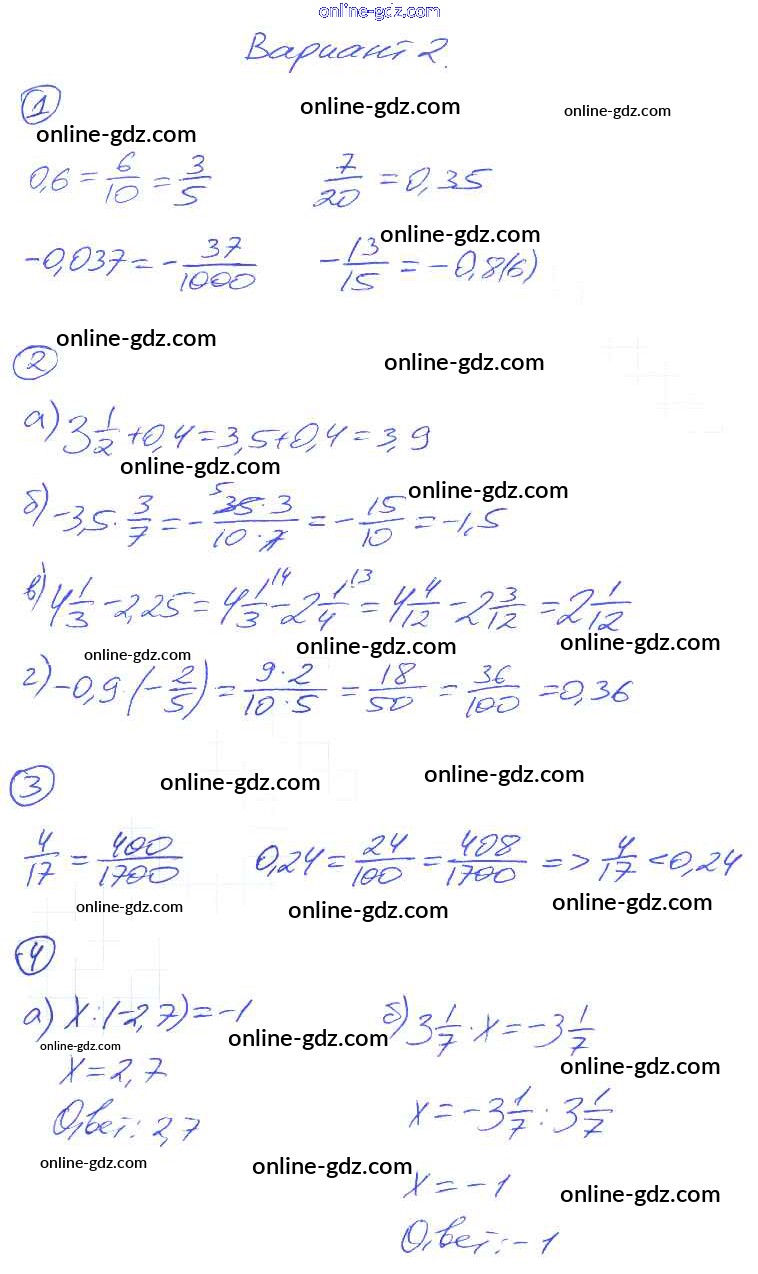 online-gdz.com
Вариант 2.
1
online-gdz.com online-gdz.com
online-gdz.com
0,6 = 6/10 = 3/5 7/20 = 0,35
online-gdz.com
-0,037 = -37/1000 -13/15 = -0,8(6)
online-gdz.com
2 online-gdz.com
а) 3 1/2 + 0,4 = 3,5 + 0,4 = 3,9
online-gdz.com
online-gdz.com
б) -3,5 · 3/7 = - 35 · 3/10 · 7 = -15/10 = -1,5
5
в) 4 1/3 - 2,25 = 4 1/3 - 2 1/4 = 4 4/12 - 2 3/12 = 2 1/12
14 13
online-gdz.com online-gdz.com online-gdz.com
г) -0,9 · (-2/5) = 9 · 2/10 · 5 = 18/50 = 36/100 = 0,36
3 online-gdz.com online-gdz.com
4/17 = 400/1700 0,24 = 24/100 = 408/1700 => 4/17 < 0,24
online-gdz.com online-gdz.com online-gdz.com
4
а) x : (-2,7) = -1 б) 3 1/7 · x = -3 1/7
online-gdz.com online-gdz.com online-gdz.com
x = 2,7 x = -3 1/7 : 3 1/7
Ответ: 2,7
online-gdz.com online-gdz.com online-gdz.com
x = -1
Ответ: -1